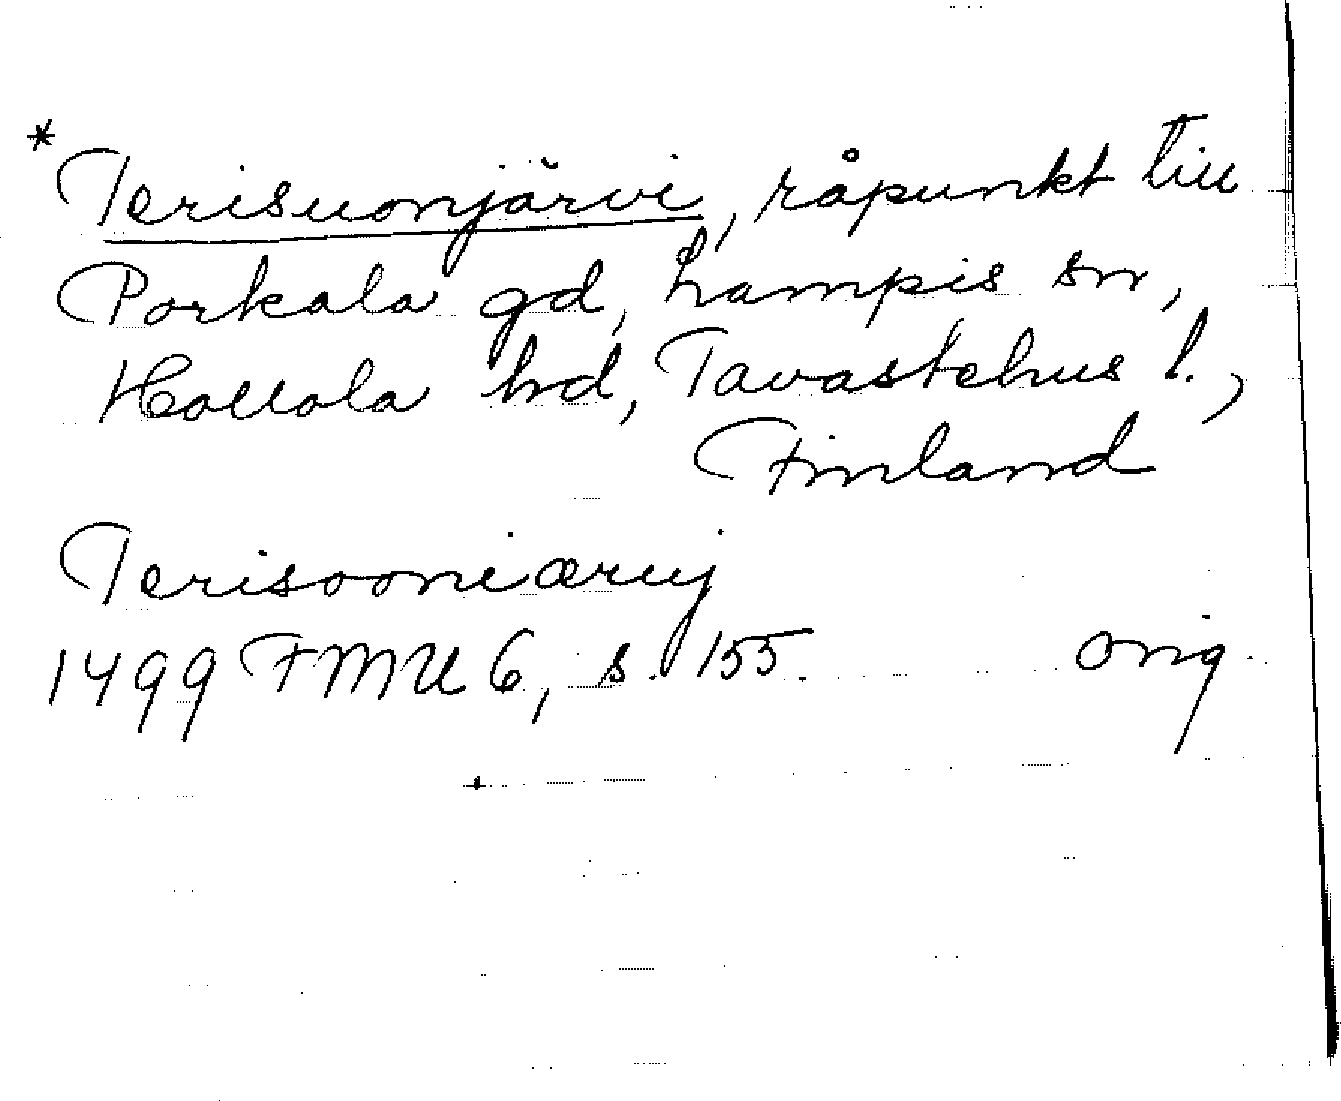 * Terisuonjärvi, råpunkt till
Porkala gd, Lampis sn,
Hollola hd, Tavastehus l.,
Finland
Terisooniærvj
1499 FMU 6, s. 155. orig.